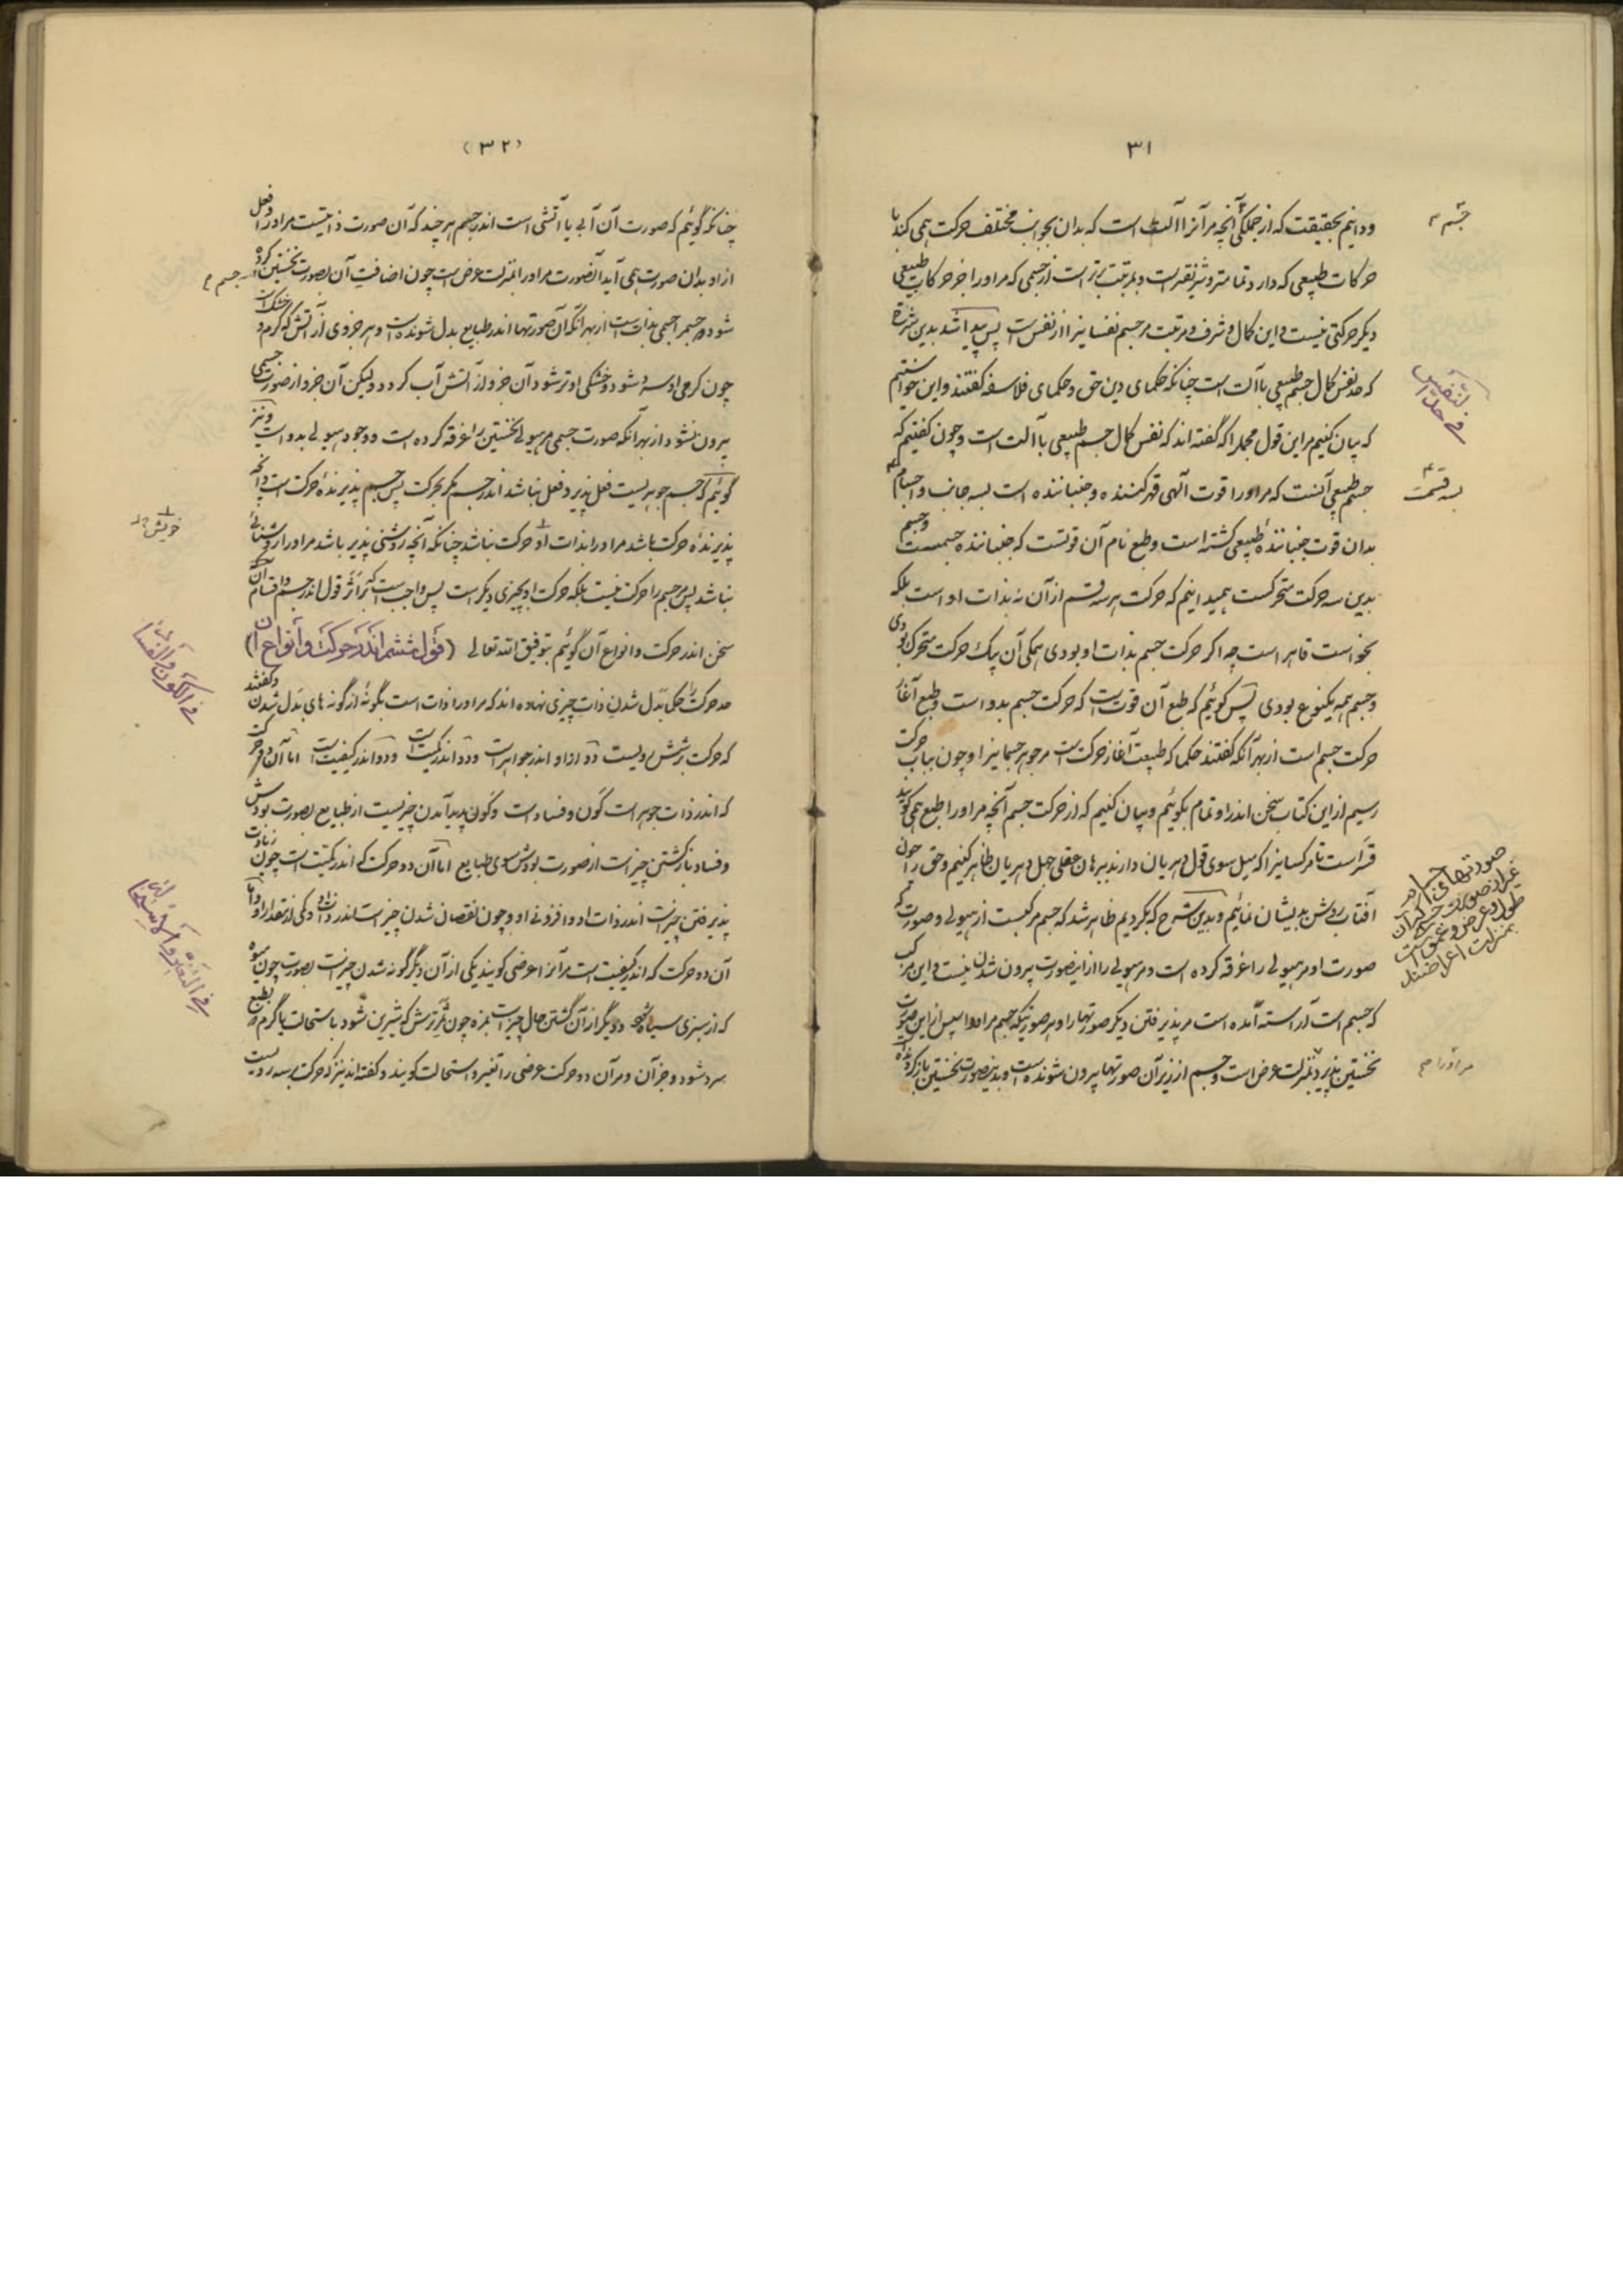 ۳۱
ودانیم بحقیقت که از جملگی آنچه مر آنرا آلت است که بدان بجوانب مختلف حرکت همی کند با
حرکات طبیعی که دارد تمامتر و شریفتر است و بمرتبت برتر است از جسمی که مر اورا جز حرکات طبیعی
دیگر حرکتی نیست و این کمال و شرف و مرتبت مر جسم نفسانیرا از نفس است پس پیدا شد بدین شرح
که حد نفس کمال جسم طبیعی با آلت است چنانکه حکمای دین حق و حکمای فلاسفه گفتند و این خواستیم
که بیان کنیم مر این قول مجمل را که گفته اند که نفس کمال جسم طبیعی با آلت است و چون گفتیم که
جسم طبیعی آنست که مر اورا قوت الهی قهر کننده و جنباننده است بسه جانب و اجسام
بدان قوت جنباننده طبیعی گشته است و طبع نام آن قوتست که جنباننده جسمست و جسم
بدین سه حرکت متحرکست همیدانیم که حرکت هر سه قسم از آن نه بذات او است بلکه
بخواست قاهر است چه اگر حرکت جسم بذات او بودی همگی آن بیک حرکت متحرک بودی
و جسم همه یکنوع بودی پس گوئیم که طبع آن قوت است که حرکت جسم بدو است و طبع آغاز
حرکت جسم است از بهر آنکه گفتند حکما که طبیعت آغاز حرکت است مر جوهر جسمانیرا و چون بباب حرکت
رسیم از این کتاب سخن اندر او تمام بگوئیم و بیان کنیم که از حرکت جسم آنچه مر اورا طبع همی گویند
قسر است تا مر کسانیرا که میل سوی قول دهریان دارند ببرهان عقلی جهل دهریان ظاهر کنیم و حق را چون
آفتاب روشن بدیشان نمائیم و بدین شرح که بکردیم ظاهر شد که جسم مرکبست از هیولی و صورت که
صورت او مر هیولی را غرقه کرده است و مر هیولی را از این صورت بیرون شدن نیست و این مرکب
که جسم است آراسته آمده است مر پذیرفتن دیگر صورتها را و هر صورتیکه جسم مر اورا سپس از این صورت
نخستین پذیرد بمنزلت عرض است و جسم از زیر آن صورتها بیرون شونده است و بدین صورت نخستین باز گردنده
جسم
فی حد النفس
بسه قسمت
مر اورا
(۳۲)
چنانکه گوئیم که صورت آن آبی یا آتشی است اندر جسم هر چند که آن صورت ذاتیست مر اورا و فعل
از او بدان صورت همی آید آن صورت مر اورا بمنزلت عرض است چون اضافت آن بصورت نخستین کرده
شود و جسم را جسمی بذات است از بهر آنکه آن صورتها اندر طبایع بدل شونده است و هر جزوی از آتش که گرم و خشک است
چون گرمی او سرد شود و خشکی او تر شود آن جزو از آتش آب گردد ولیکن آن جزو از صورت جسمی
بیرون نشود از بهر آنکه صورت جسمی مر هیولی نخستین را غرقه کرده است و وجود هیولی بدو است و نیز
گوئیم که جسم جوهریست فعل پذیر و فعل نباشد اندر جسم مگر بحرکت پس جسم پذیرنده حرکت است و آنچه
پذیرنده حرکت باشد مر اورا بذات او حرکت نباشد چنانکه آنچه روشنی پذیر باشد مر اورا روشنائی
نباشد پس مر جسم را حرکت نیست بلکه حرکت او بچیزی دیگر است پس واجب است که بر اثر قول اندر جسم و اقسام آن
سخن اندر حرکت و انواع آن گوئیم بتوفیق الله تعالی (قول ششم اندر حرکت و انواع آن)
حد حرکت را حکما بدل شدن ذات چیزی نهاده اند که مر اورا ذات است بگونهٔ از گونه های بدل شدن و گفتند
که حرکت بر شش رویست دو از او اندر جواهر است و دو اندر کمیت است و دو اندر کیفیت است اما آن دو حرکت
که اندر ذات جوهر است کون و فساد است و کون پدید آمدن چیزیست از طبایع بصورت بودش
و فساد باز گشتن چیز است از صورت بودش سوی طبایع اما آن دو حرکت که اندر کمیت است چون زیادت
پذیرفتن چیز است اندر ذات او و افزونی او و چون نقصان شدن چیز است اندر ذات او و کمی از مقدار او و اما
آن دو حرکت که اندر کیفیت است مر آنرا عرضی گویند یکی از آن دیگر گونه شدن چیز است بصورت چون میوه
که از سبزی سیاه شود و دیگر از آن گشتن حال چیز است بمزه چون ثمر ترش که شیرین شود باستحالت یا گرم که بطبع
سرد شود و جز آن و مر آن دو حرکت عرضی را تغیر و استحالت گویند و گفته اند نیز که حرکت بر سه رویست
جسم
خویش
فی الکون و الفساد
فی التغیر و الاستحالة